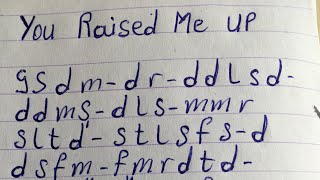 You Raised Me up
gsdm-dr-ddlsd-
ddms-dls-mmr
sltd-stlsfs-d
dsfm-fmrdtd-